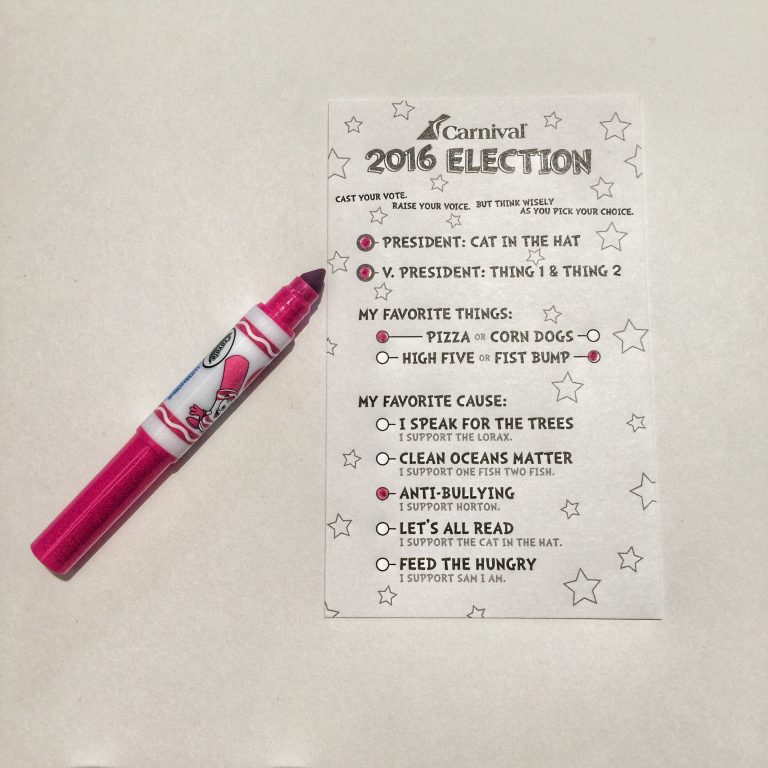 Carnival
2016 ELECTION
CAST YOUR VOTE.
RAISE YOUR VOICE. BUT THINK WISELY
AS YOU PICK YOUR CHOICE.
PRESIDENT: CAT IN THE HAT
V. PRESIDENT: THING 1 & THING 2
MY FAVORITE THINGS:
PIZZA OR CORN DOGS
HIGH FIVE OR FIST BUMP
MY FAVORITE CAUSE:
I SPEAK FOR THE TREES
I SUPPORT THE LORAX.
CLEAN OCEANS MATTER
I SUPPORT ONE FISH TWO FISH.
ANTI-BULLYING
I SUPPORT HORTON.
LET'S ALL READ
I SUPPORT THE CAT IN THE HAT.
FEED THE HUNGRY
I SUPPORT SAM I AM.
Crayola